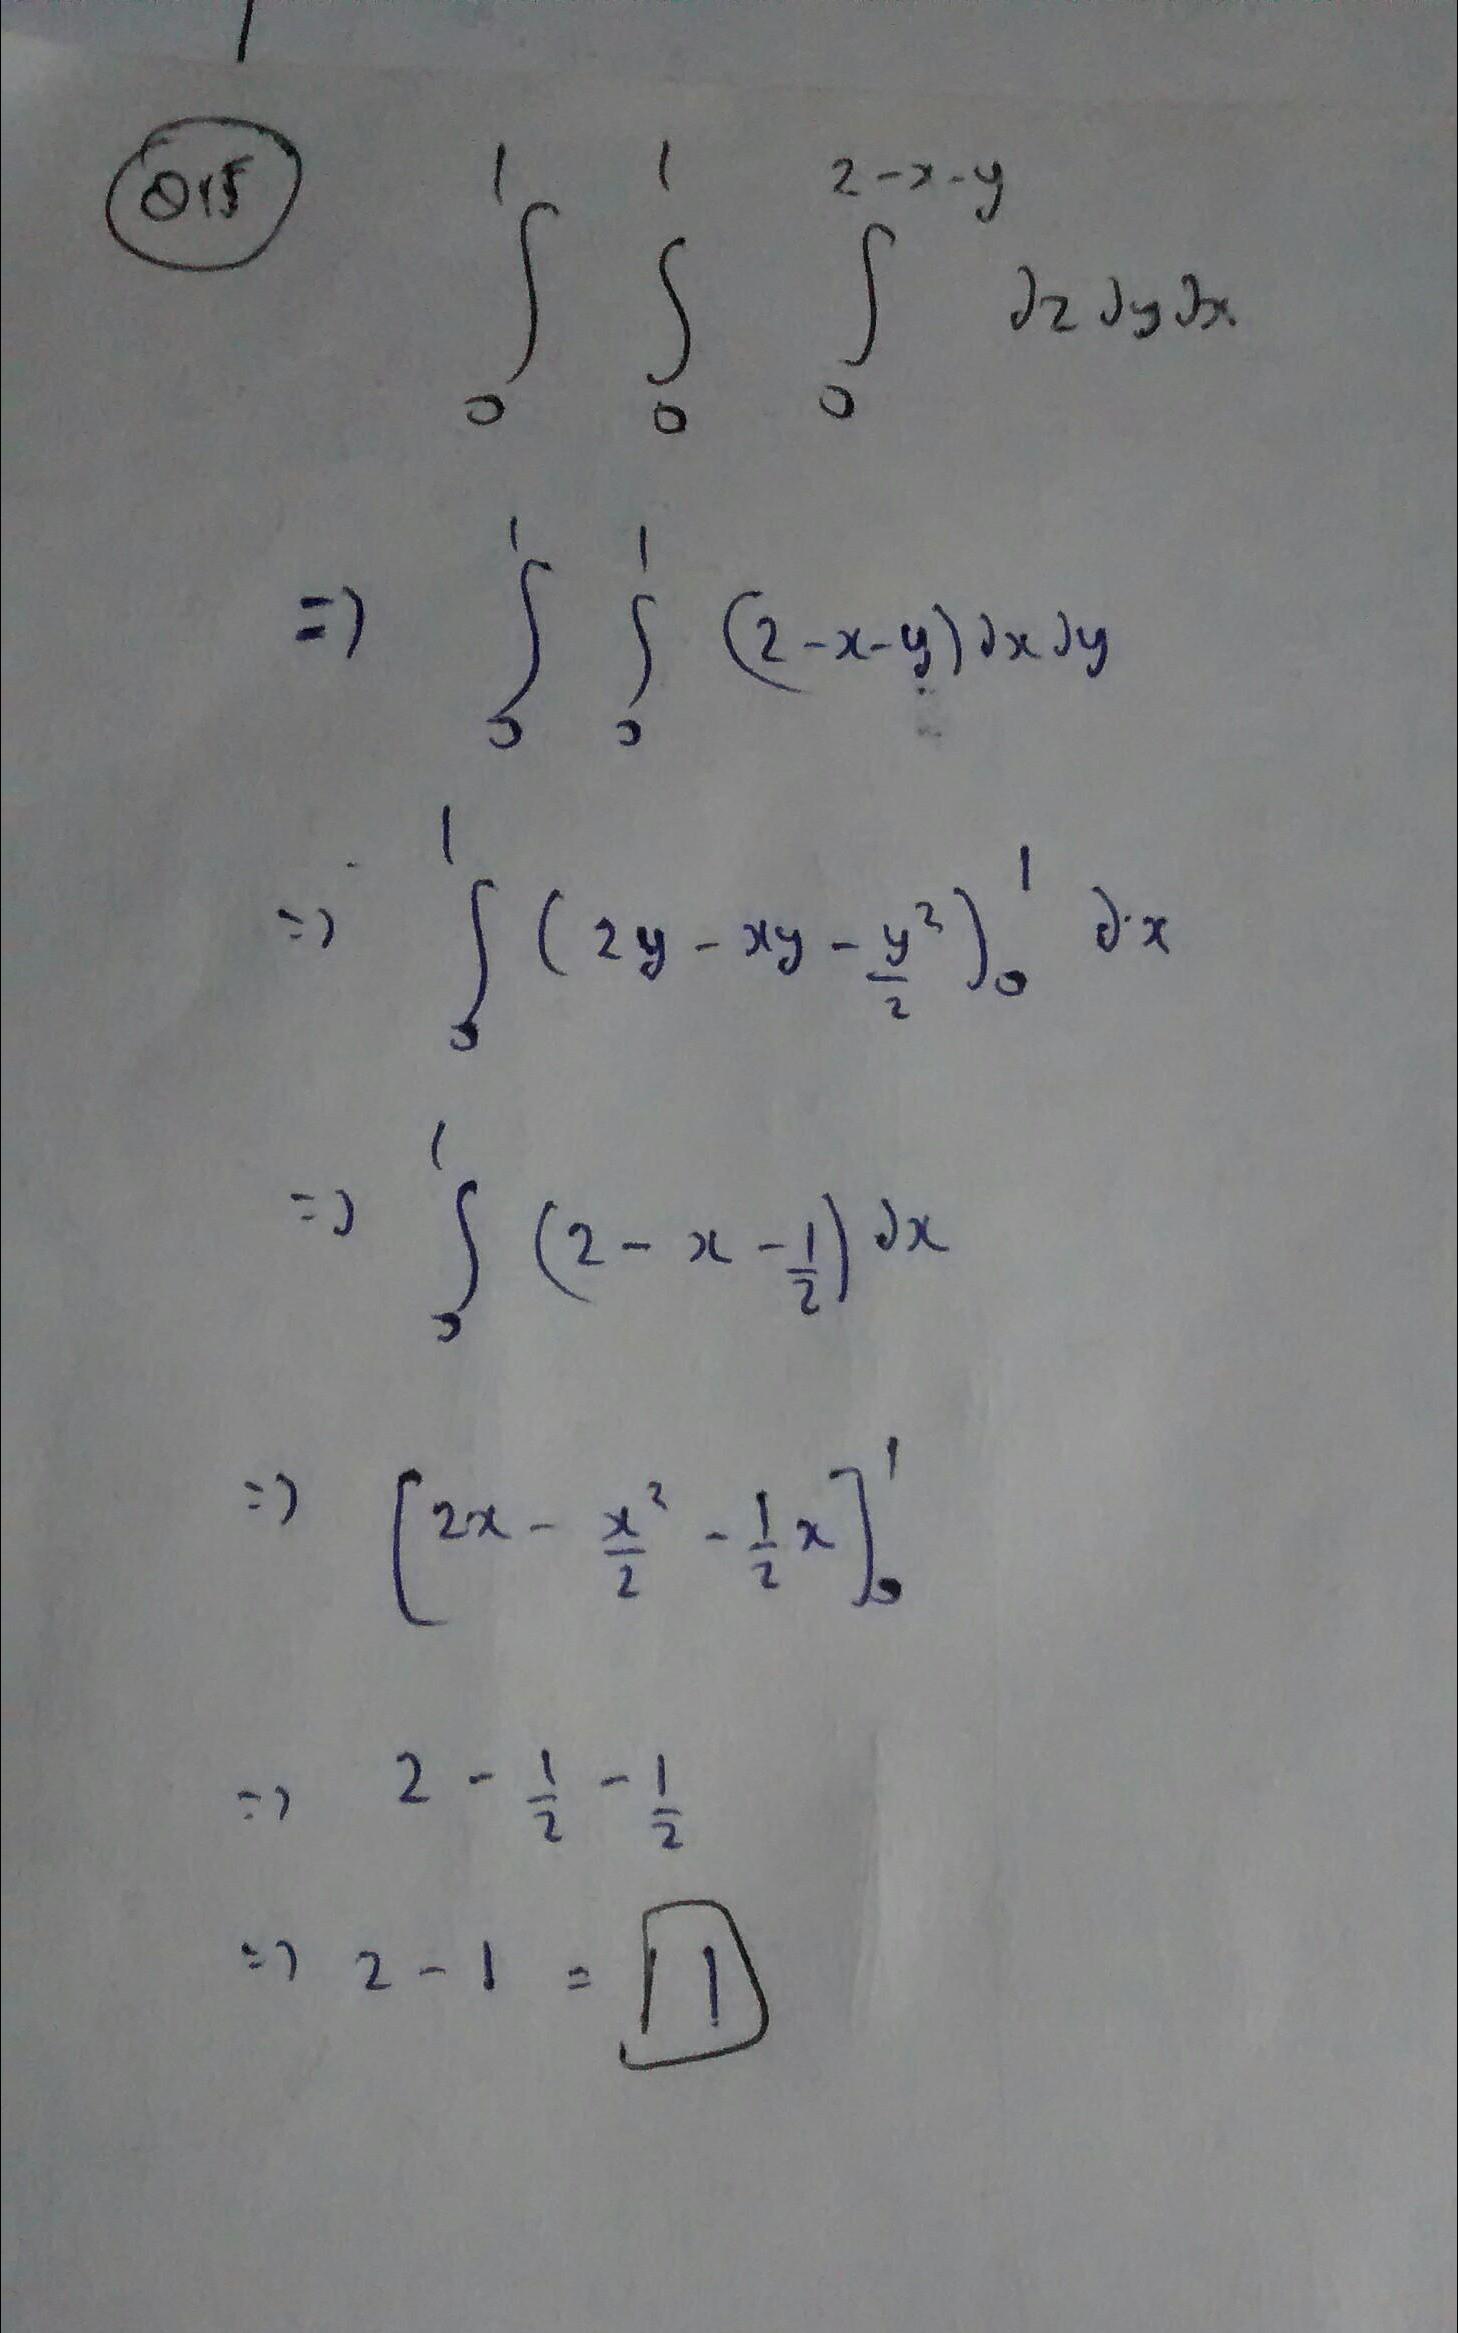 Q15 ∫₀¹ ∫₀¹ ∫₀^{2-x-y} ∂z ∂y ∂x
=> ∫₀¹ ∫₀¹ (2-x-y) ∂x ∂y
=> ∫₀¹ (2y - xy - y²/2)₀¹ ∂x
=> ∫₀¹ (2 - x - 1/2) ∂x
=> [2x - x²/2 - 1/2 x]₀¹
=> 2 - 1/2 - 1/2
=> 2 - 1 = 1